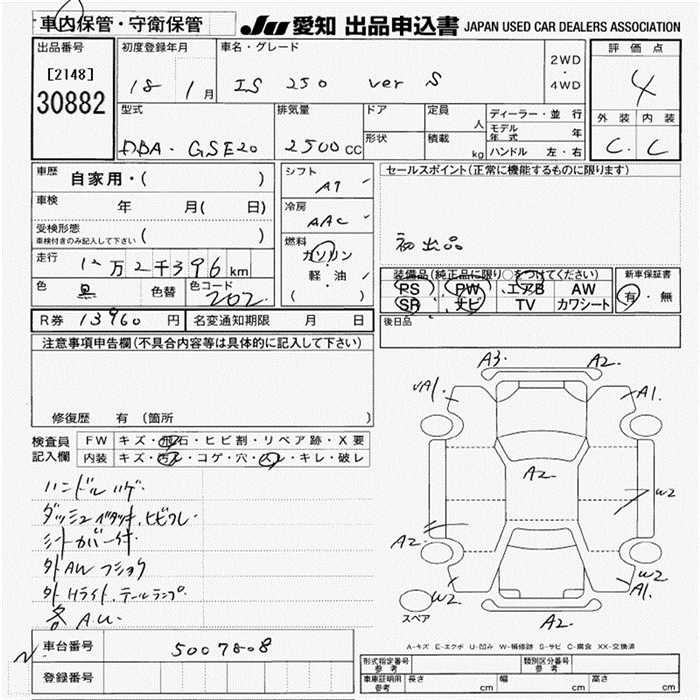 車内保管・守衛保管
JU 愛知 出品申込書 JAPAN USED CAR DEALERS ASSOCIATION
出品番号
[2148]
30882
初度登録年月
18 1月
車名・グレード
IS 250 ver S
2WD
・
4WD
評価点
4
外装 内装
C. C
型式
DBA- GSE20
排気量
2500CC
ドア
形状
定員
人
積載
kg
ディーラー・並行
モデル年式 年
ハンドル 左・右
車歴 自家用・( )
車検 年 月( 日)
受検形態
車検付きのみ記入して下さい ( )
走行 万2千396km
色 黒 色替 色コード 202
シフト
AT
冷房
AAC
燃料
ガソリン
・
軽・油
( )
セールスポイント(正常に機能するものに限ります)
初出品
装備品(純正品に限り○をつけてください)
PS PW エアB AW
SR ナビ TV カワシート
新車保証書
有・無
R券 13960円 名変通知期限 月 日
後日品
注意事項申告欄(不具合内容等は具体的に記入して下さい)
修復歴 有 (箇所 )
検査員記入欄
FW キズ・飛石・ヒビ割・リペア跡・X要
内装 キズ・汚レ・コゲ・穴・スレ・キレ・破レ
ハンドルハゲ.
ダッシュベタツキ.ヒビワレ.
シートカバー付
外AWフショク
外Hライト.テールランプ.
各A.U.
A3. A2.
A1. A1.
A2
W2
A2
W2 W2
A1
A2
スペア
A-キズ E-エクボ U-凹み W-補修跡 S-サビ C-腐食 XX-交換済
車台番号 5007808
登録番号
形式指定番号参考
類別区分番号参考
車庫証明用参考 長さ cm 幅 cm 高さ cm